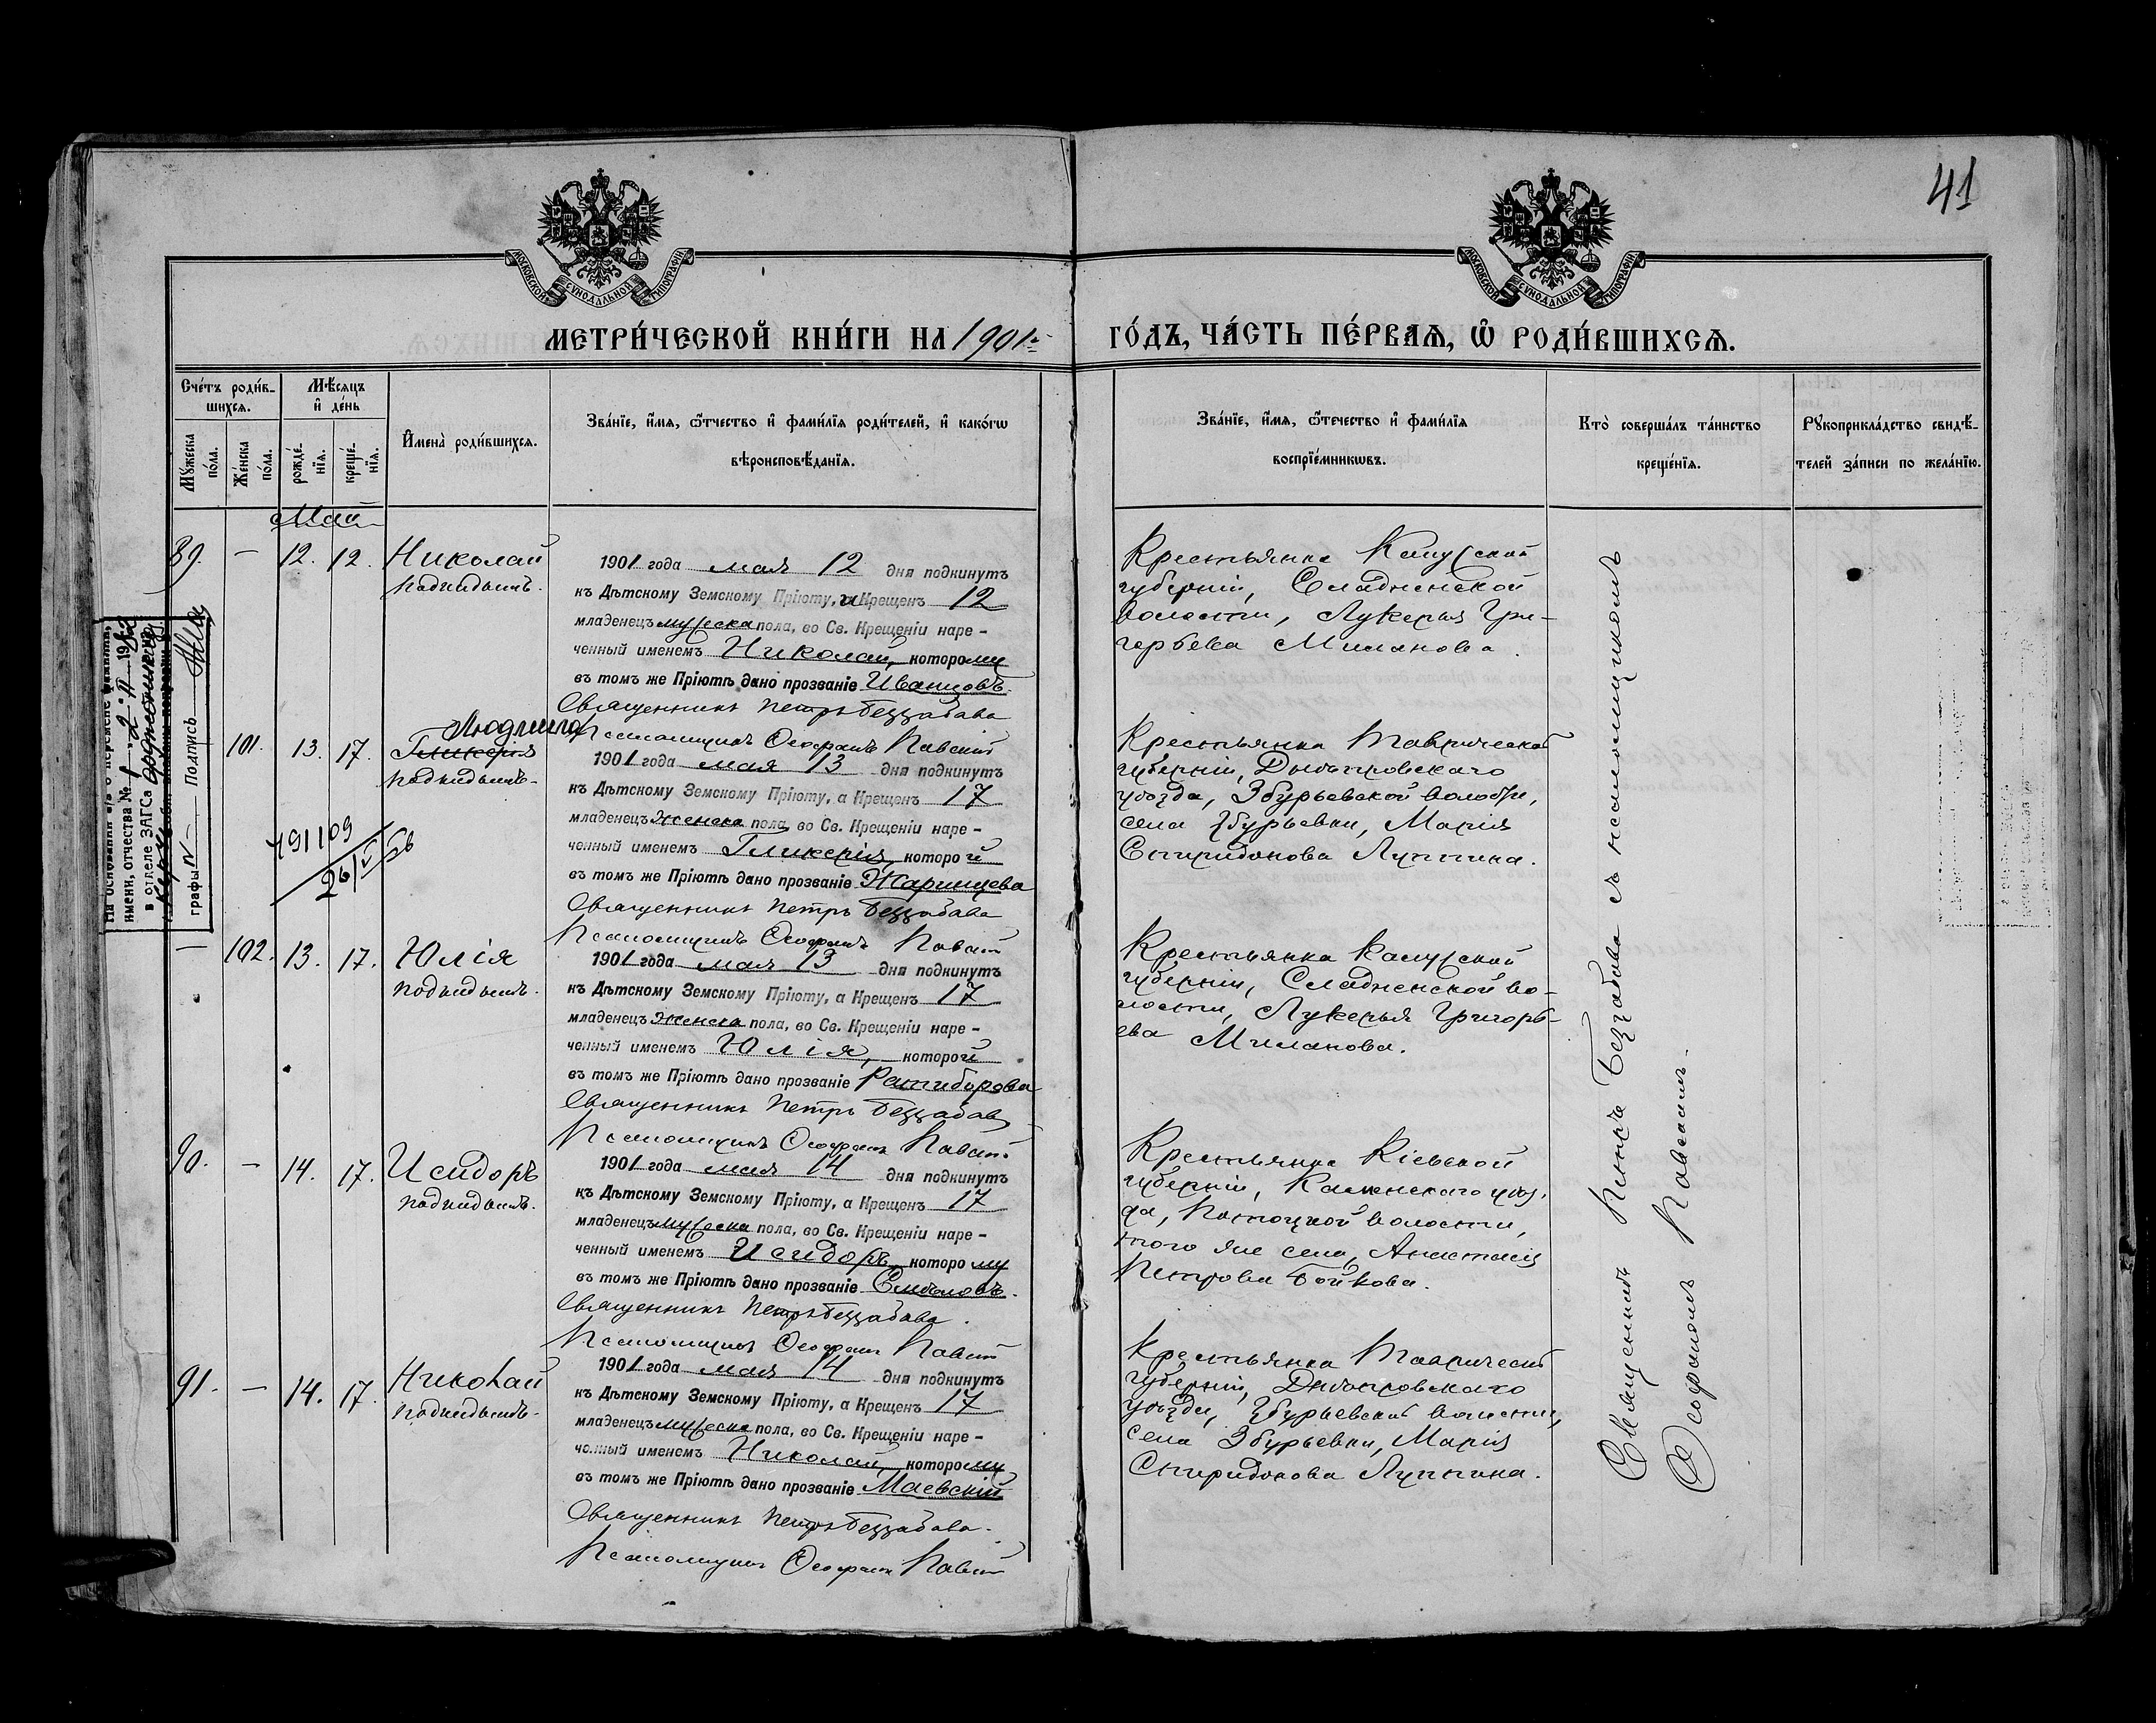 41
МОСКОВСКОЙ СѴНОДАЛЬНОЙ ТИПОГРАФІИ
МОСКОВСКОЙ СѴНОДАЛЬНОЙ ТИПОГРАФІИ
МЕТРИ́ЧЕСКОЙ КНИ́ГИ НА 1901 г.
ГО́ДЪ, ЧА́СТЬ ПЕ́РВАѦ, Ѽ РОДИ́ВШИХСѦ.
Сче́тъ роди́в-
шихсѧ.
Мꙋ́жеска по́ла.
Же́нска по́ла.
Мѣ́сѧцъ
и҆ де́нь
рожде́-нїѧ.
креще́-нїѧ.
И҆мена̀ роди́вшихсѧ.
Зва́нїе, и҆́мѧ, ѻ҆́тчество и҆ фами́лїѧ роди́телей, и҆ како́гѡ
вѣроисповѣ́данїѧ.
Зва́нїе, и҆́мѧ, ѻ҆́течество и҆ фами́лїѧ
воспрїе́мникѡвъ.
Кто̀ соверша́лъ та́инство
креще́нїѧ.
Рꙋкоприкла́дство свидѣ́-
телей за́писи по жела́нїю.
Май
89. — 12. 12. Николай
подкидышъ.
1901 года мая 12 дня подкинутъ
къ Дѣтскому Земскому Пріюту, и Крещенъ 12
младенецъ мужеска пола, во Св. Крещеніи наре-
ченный именемъ Николай, которому
въ томъ же Пріютѣ дано прозваніе Иванцовъ.
Священникъ Петръ Беззабава
Псаломщикъ Ѳеофанъ Павскій
Крестьянка Калужской
губерніи,
волости, Лукерья Гри-
горьева Миланова.
101. 13. 17. Людмила
Гликерія
подкидышъ.
1901 года мая 13 дня подкинутъ
къ Дѣтскому Земскому Пріюту, а Крещенъ 17
младенецъ женска пола, во Св. Крещеніи наре-
ченный именемъ Гликерія, которой
въ томъ же Пріютѣ дано прозваніе Жаринцева
Священникъ Петръ Беззабава
Псаломщикъ Ѳеофанъ
Крестьянка Таврической
губерніи, Днѣпровскаго
уѣзда, Збурьевской волости,
села Збурьевки, Марія
Спиридонова Луппина.
На основании а/з о перемене фамилии,
имени, отчества № 1 2.II 19
в отделе ЗАГСа
графы Подпись
491109
26/V 56
— 102. 13. 17. Юлія
подкидышъ.
1901 года мая 13 дня подкинутъ
къ Дѣтскому Земскому Пріюту, а Крещенъ 17
младенецъ женска пола, во Св. Крещеніи наре-
ченный именемъ Юлія, которой
въ томъ же Пріютѣ дано прозваніе Ратиборова
Священникъ Петръ Беззабава
Псаломщикъ Ѳеофанъ
Крестьянка Калужской
губерніи, во-
лости, Лукерья Григорь-
ева Миланова.
90. — 14. 17. Исидоръ
подкидышъ.
1901 года мая 14 дня подкинутъ
къ Дѣтскому Земскому Пріюту, а Крещенъ 17
младенецъ мужеска пола, во Св. Крещеніи наре-
ченный именемъ Исидоръ, которому
въ томъ же Пріютѣ дано прозваніе
Священникъ Петръ Беззабава.
Псаломщикъ Ѳеофанъ
Крестьянка Кіевской
губерніи, уѣз-
да, волости,
того же села, Анастасія
Петрова Бойкова.
91. — 14. 17. Николай
подкидышъ.
1901 года мая 14 дня подкинутъ
къ Дѣтскому Земскому Пріюту, а Крещенъ 17
младенецъ мужеска пола, во Св. Крещеніи наре-
ченный именемъ Николай, которому
въ томъ же Пріютѣ дано прозваніе Маевскій
Священникъ Петръ Беззабава.
Псаломщикъ Ѳеофанъ
Крестьянка Таврической
губерніи, Днѣпровскаго
уѣзда, Збурьевской волости,
села Збурьевки, Марія
Спиридонова Луппина.
Священникъ Петръ Беззабава съ псаломщикомъ
Ѳеофаномъ Павскимъ.